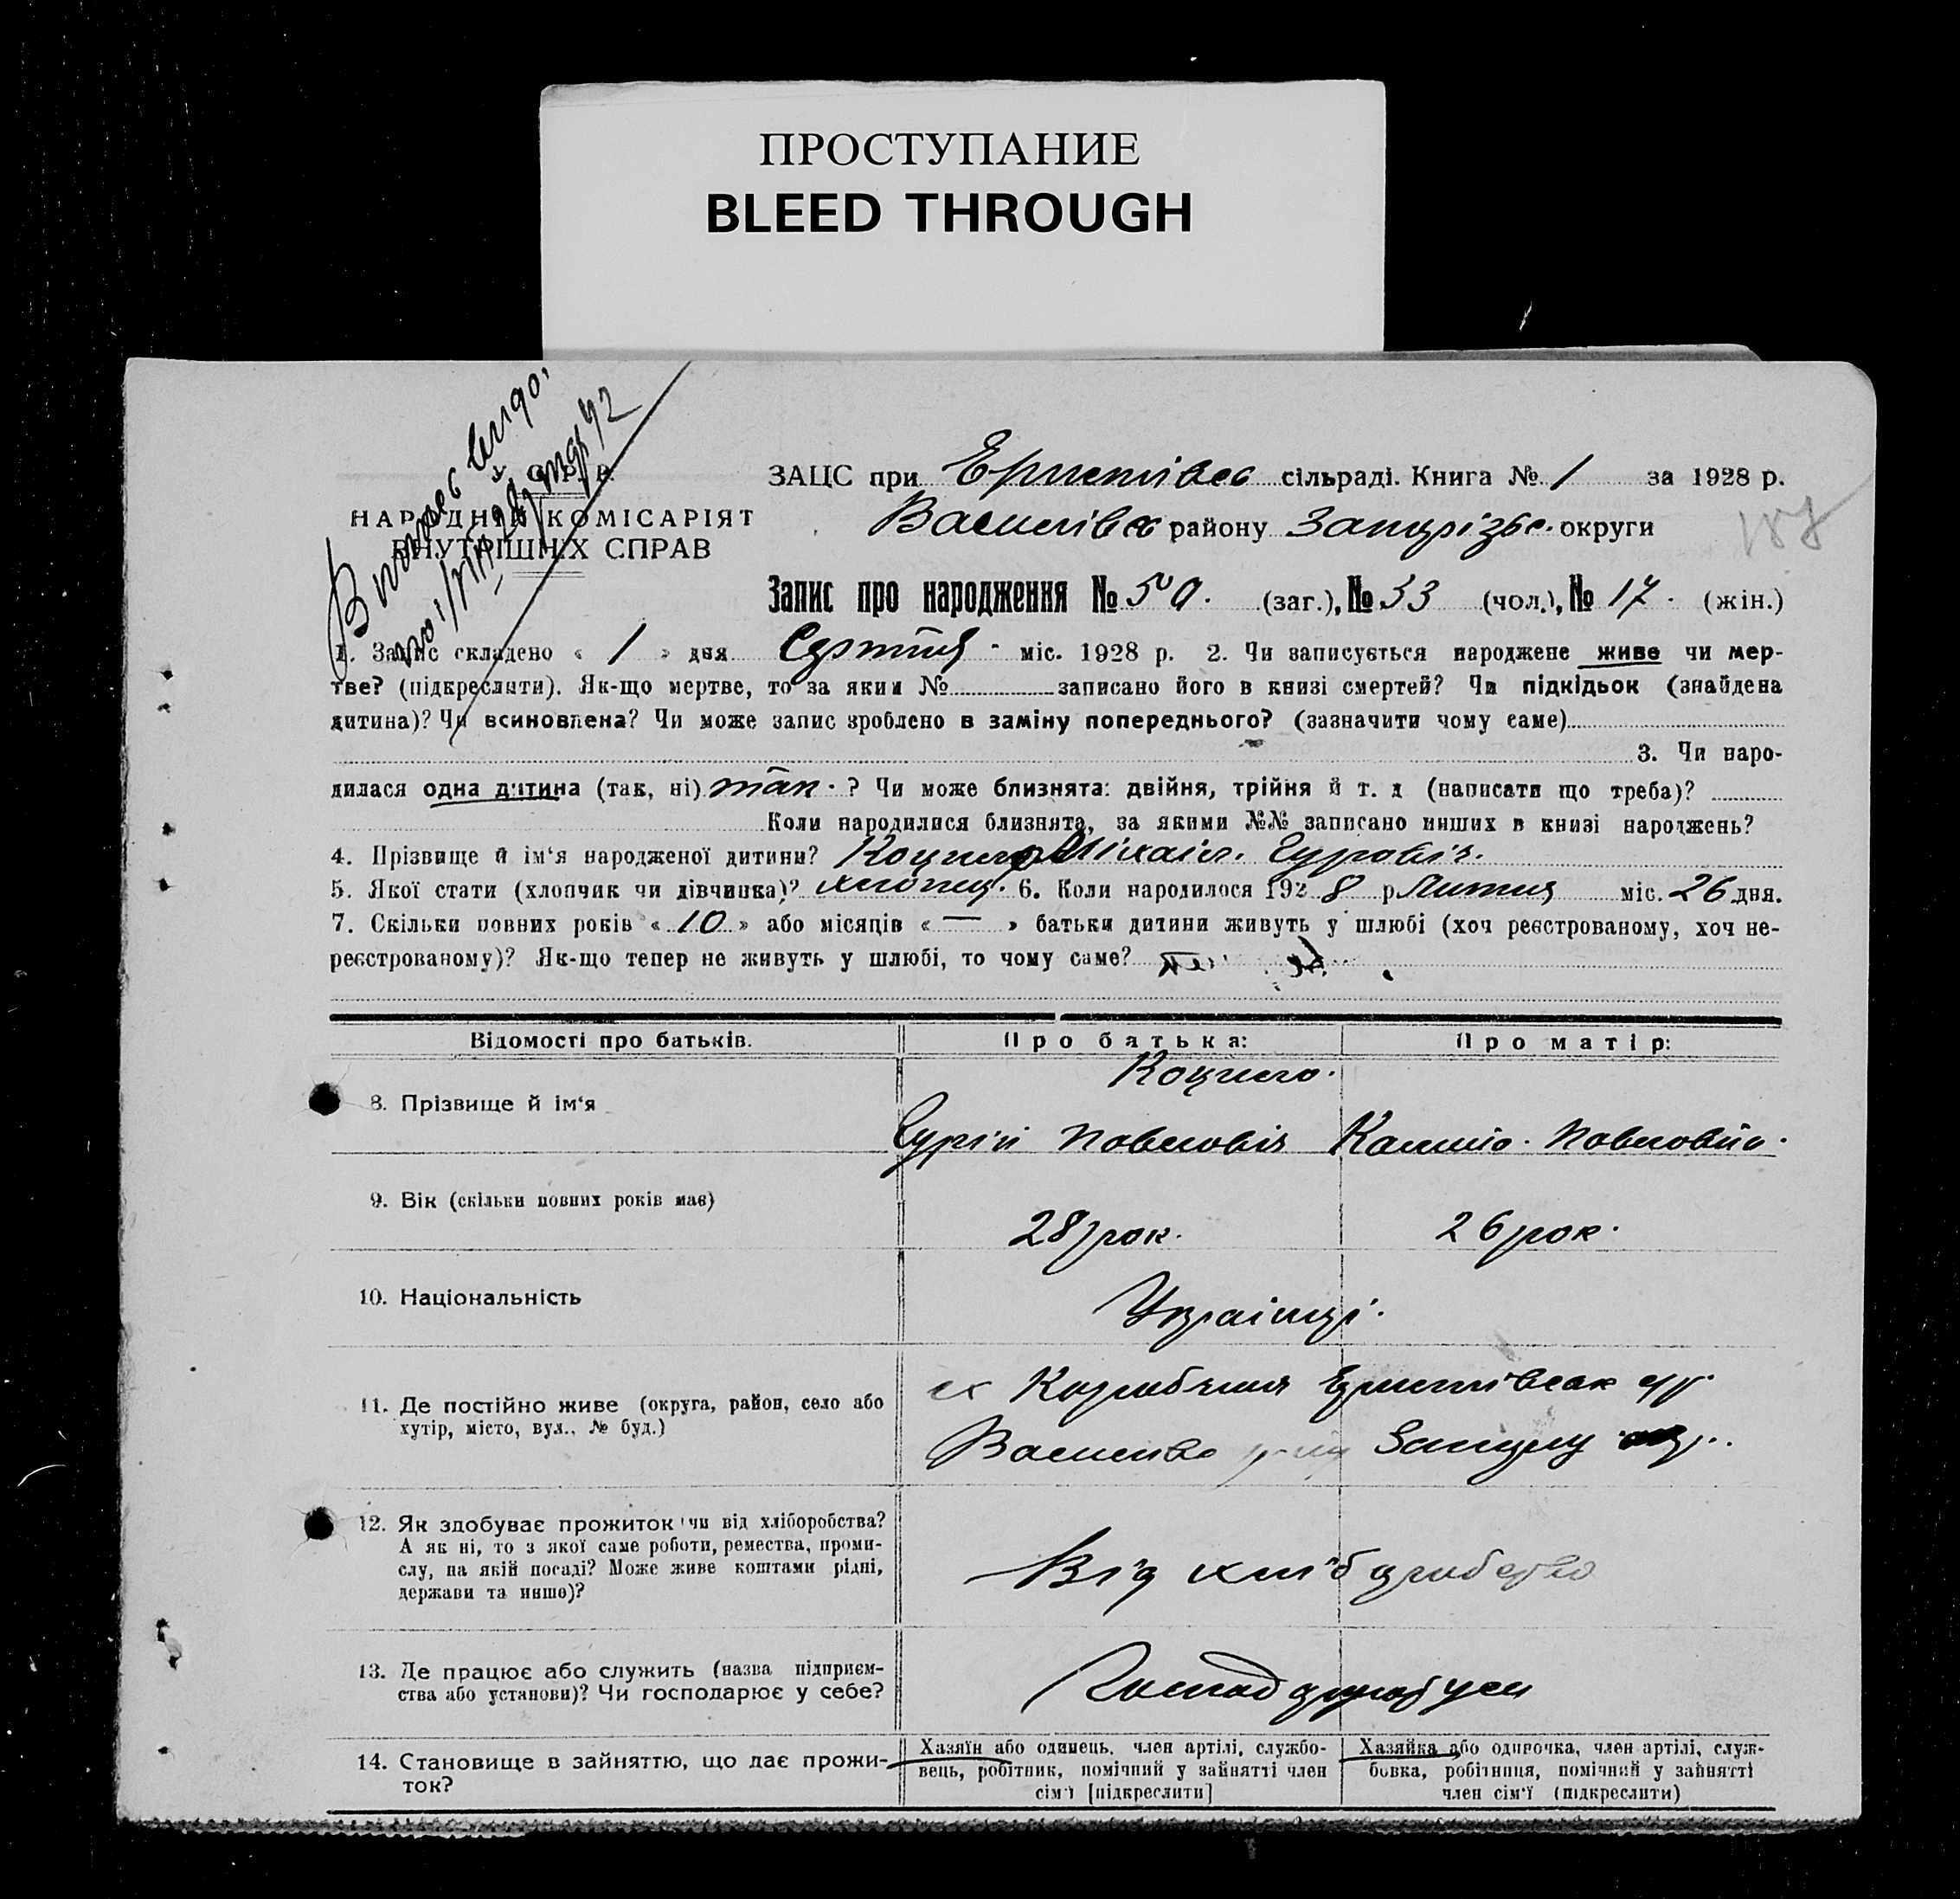 ПРОСТУПАНИЕ
BLEED THROUGH
У. С. Р. Р.
НАРОДНІЙ КОМІСАРІЯТ
ВНУТРІШНІХ СПРАВ
ЗАЦС при сільраді. Книга № 1 за 1928 р.
Василівсь району Запорізьк. округи
Запис про народження № 50. (заг.), № 33 (чол.), № 17. (жін.)
1. Запис складено « 1 » дня міс. 1928 р. 2. Чи записується народжене живе чи мер-
тве? (підкреслити). Як-що мертве, то за яким № записано його в книзі смертей? Чи підкідьок (знайдена
дитина)? Чи всиновлена? Чи може запис зроблено в заміну попереднього? (зазначити чому саме)
3. Чи наро-
дилася одна дитина (так, ні) так. ? Чи може близнята: двійня, трійня й т. д (написати що треба)?
Коли народилися близнята, за якими №№ записано инших в книзі народжень?
4. Прізвище й ім‘я народженої дитини? Міхаіл.
5. Якої стати (хлопчик чи дівчинка)? хлопец. 6. Коли народилося 192 8 р Лютия міс. 26 дня.
7. Скільки повних років « 10 » або місяців « — » батьки дитини живуть у шлюбі (хоч реєстрованому, хоч не-
реєстрованому)? Як-що тепер не живуть у шлюбі, то чому саме?
Відомості про батьків.
Про батька:
Про матір:
8. Прізвище й ім‘я
Павловія
9. Вік (скільки повних років має)
28 рок.
26 рок.
10. Національність
Украінці.
11. Де постійно живе (округа, район, село або
хутір, місто, вул., № буд.)
12. Як здобуває прожиток чи від хліборобства?
А як ні, то з якої саме роботи, ремества, проми-
слу, на якій посаді? Може живе коштами рідні,
держави та инше)?
Від хліборобство
13. Де працює або служить (назва підприєм-
ства або установи)? Чи господарює у себе?
14. Становище в зайняттю, що дає прожи-
ток?
Хазяїн або одинець, член артілі, службо-
вець, робітник, помічний у зайнятті член
сім‘ї [підкреслити]
Хазяйка або одиночка, член артілі, служ-
бовка, робітниця, помічний у зайнятті
член сім‘ї (підкреслити)